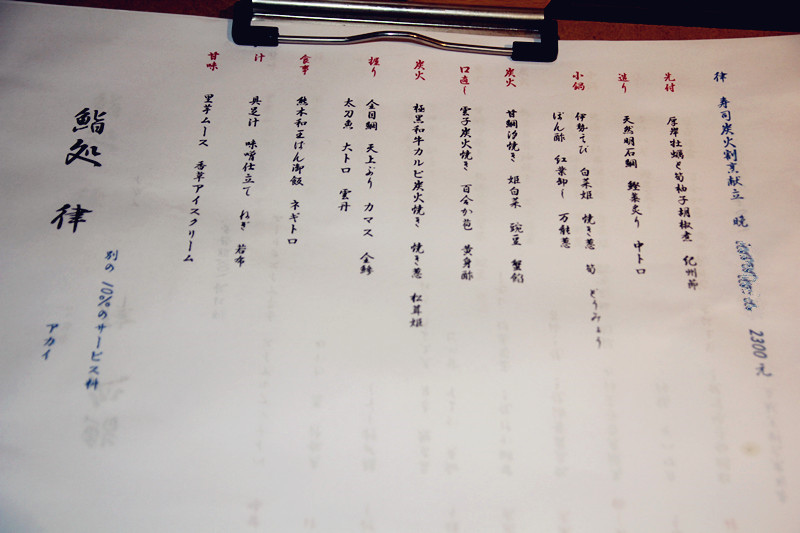 律 寿司炭火割烹献立 暁 2300元
先付
厚岸牡蠣と筍柚子胡椒煮 紀州節
造り
天然明石鯛 鰹藁炙り 中トロ
小鍋
伊勢えび 白菜姫 焼き葱 筍
ぽん酢 紅葉卸し 万能葱
炭火
甘鯛汐焼き 姫白菜 豌豆 蟹餡
口直し
雲子炭火焼き 百合か苞 黄身酢
炭火
極黒和牛カルビ炭火焼き 焼き葱 松茸姫
握り
金目鯛 天上ぶり カマス 金鯵
太刀魚 大トロ 雲丹
食事
熊木和王ばん御飯 ネギトロ
汁
具足汁 味噌仕立て ねぎ 若布
甘味
里芋ムース 香草アイスクリーム
鮨処 律
別の10%のサービス料
アカイ